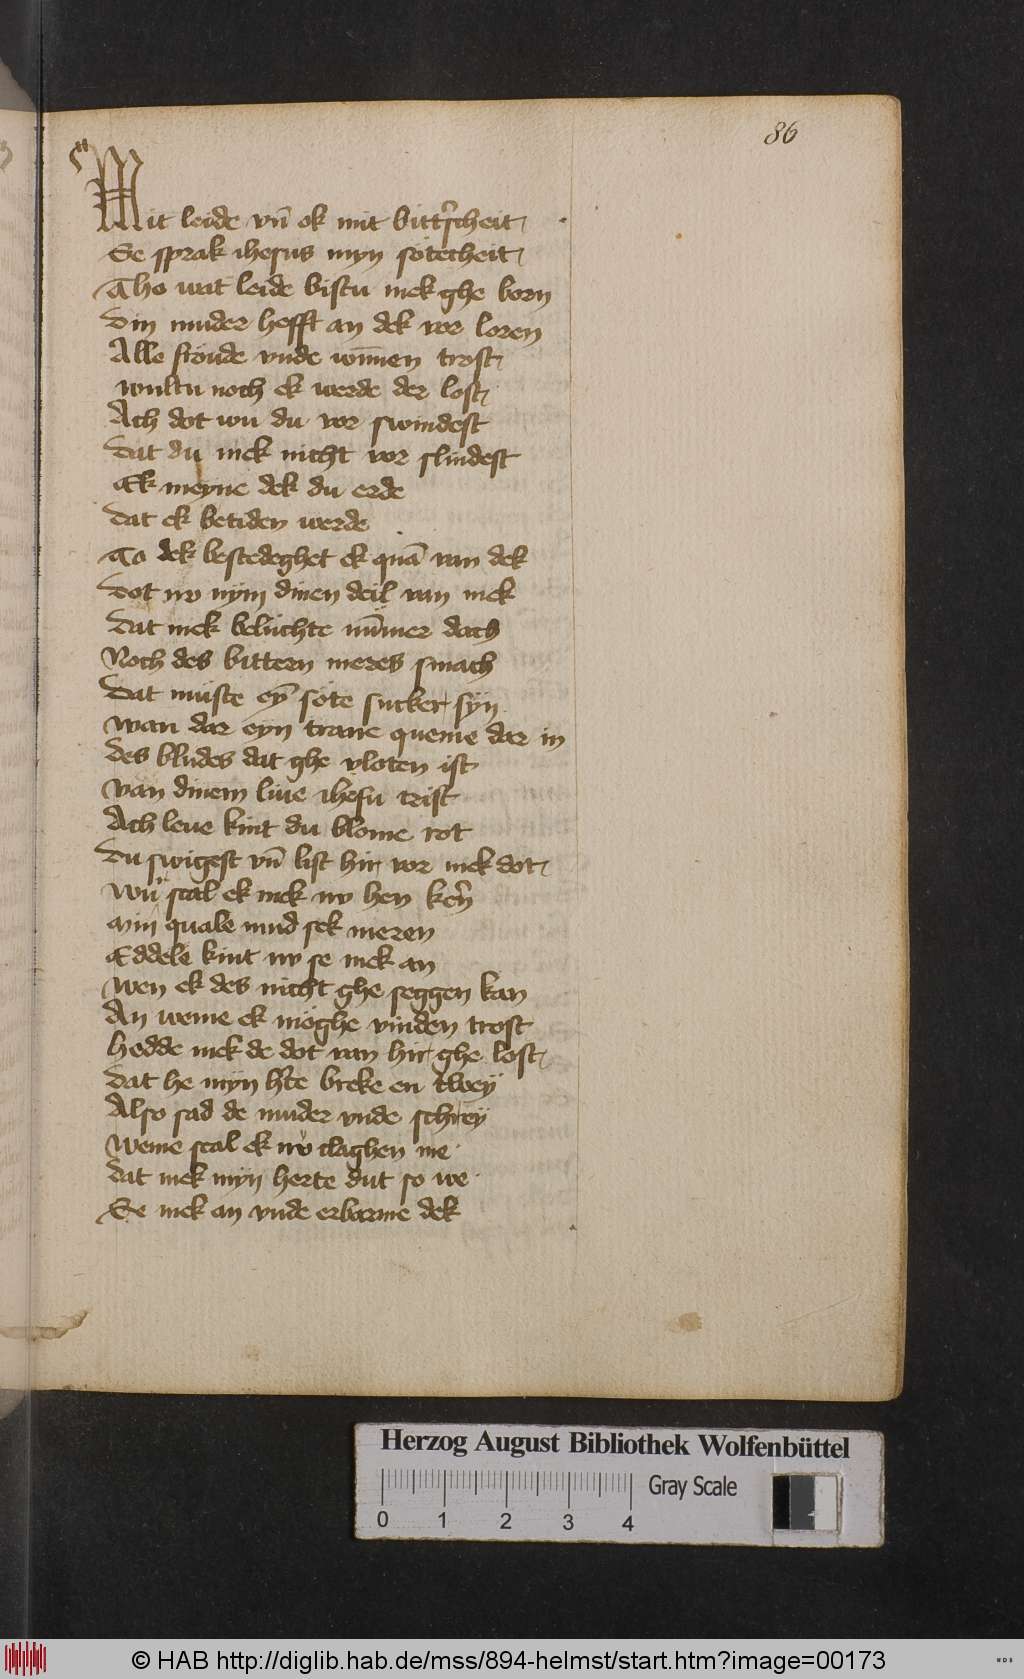 86
Mit leide vn̄ ok mit bittʼscheit
Se sprak ihesus myn sötecheit
Tho wat leide bistu mek ghe born
Din muder hefft an dek vor loren
Alle fröude vnde wūnen trost
wultu noch ek werde der lost
Ach dot wu du vor swindest
dat du mek nicht vor slindest
Ek meyne dek du erde
dat ek betiden werde
To dek bestedeghet ek quā van dek
dot nv nym dinen deil van mek
dat mek beluchte nūmer dach
Noch des bittern meres smach
dat müste ey̅ söte sucker syn
wan dar eyn trane queme dar in
des bludes dat ghe vloten ist
van dinem liue ihesu crist
Ach leue kint du blome rot
du swigest vn̄ list hir vor mek dot
wu scal ek mek nv hen kēr̄
min quale mud sek meren
Eddele kint nv se mek an
wen ek des nicht ghe seggen kan
An weme ek möghe vinden trost
hedde mek de dot van hir ghe lost
dat he myn hʼte breke en twey
Also sad de muder vnde schrey
weme scal ek nv claghen me
dat mek myn herte dut so we
Se mek an vnde erbarme dek
Herzog August Bibliothek Wolfenbüttel
Gray Scale
0 1 2 3 4
© HAB http://diglib.hab.de/mss/894-helmst/start.htm?image=00173